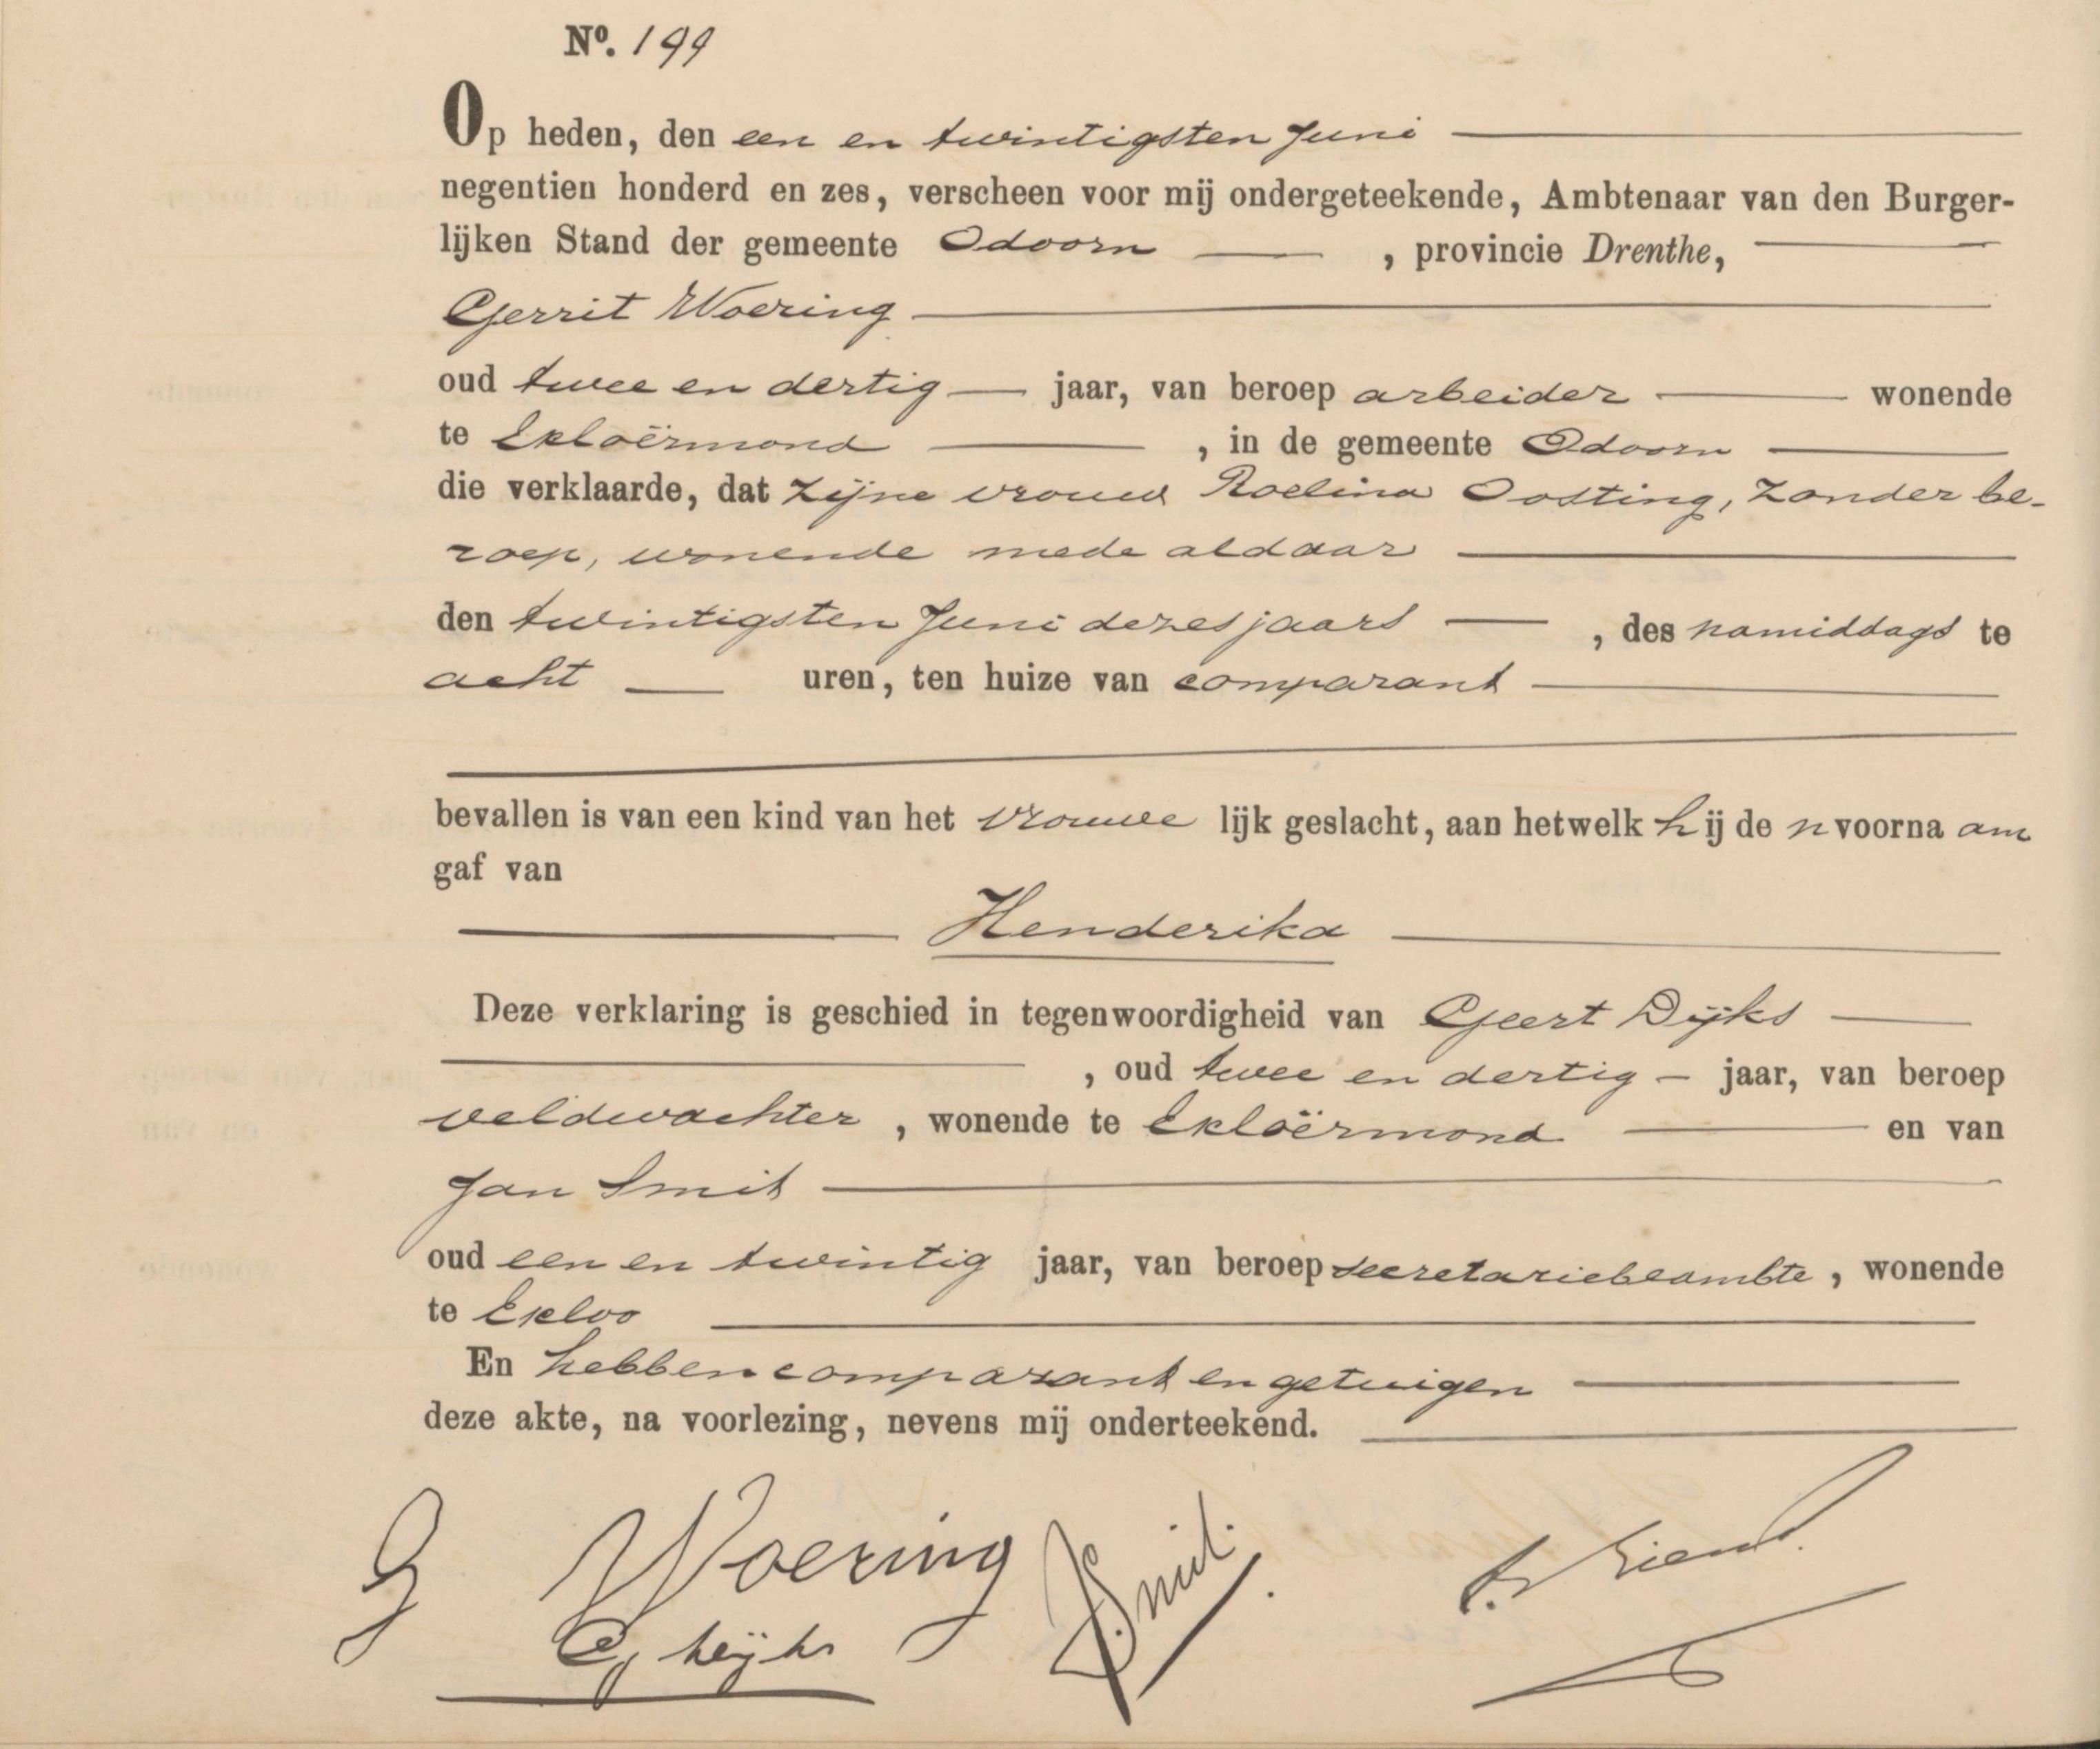 Nº. 199
Op heden, den een en twintigsten Juni
negentien honderd en zes, verscheen voor mij ondergeteekende, Ambtenaar van den Burger-
lijken Stand der gemeente Odoorn , provincie Drenthe,
Gerrit Woering
oud twee en dertig jaar, van beroep arbeider wonende
te Exloërmond , in de gemeente Odoorn
die verklaarde, dat zijne vrouw Roelina Oosting, zonder be-
roep, wonende mede aldaar
den twintigsten Juni dezes jaars , des namiddags te
acht uren, ten huize van comparant
bevallen is van een kind van het vrouwe lijk geslacht, aan hetwelk hij de n voorna am
gaf van
Henderika
Deze verklaring is geschied in tegenwoordigheid van Geert Dijks
, oud twee en dertig jaar, van beroep
veldwachter , wonende te Exloërmond en van
Jan Smit
oud een en twintig jaar, van beroep secretariebeambte , wonende
te Exloo
En hebben comparant en getuigen
deze akte, na voorlezing, nevens mij onderteekend.
G Woering
G Dijks
J. Smit.